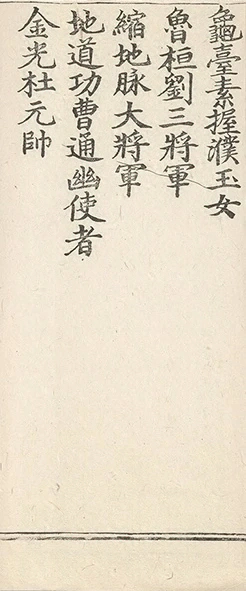 龜臺素握濮玉女
魯桓劉三將軍
縮地脉大將軍
地道功曹通幽使者
金光杜元帥